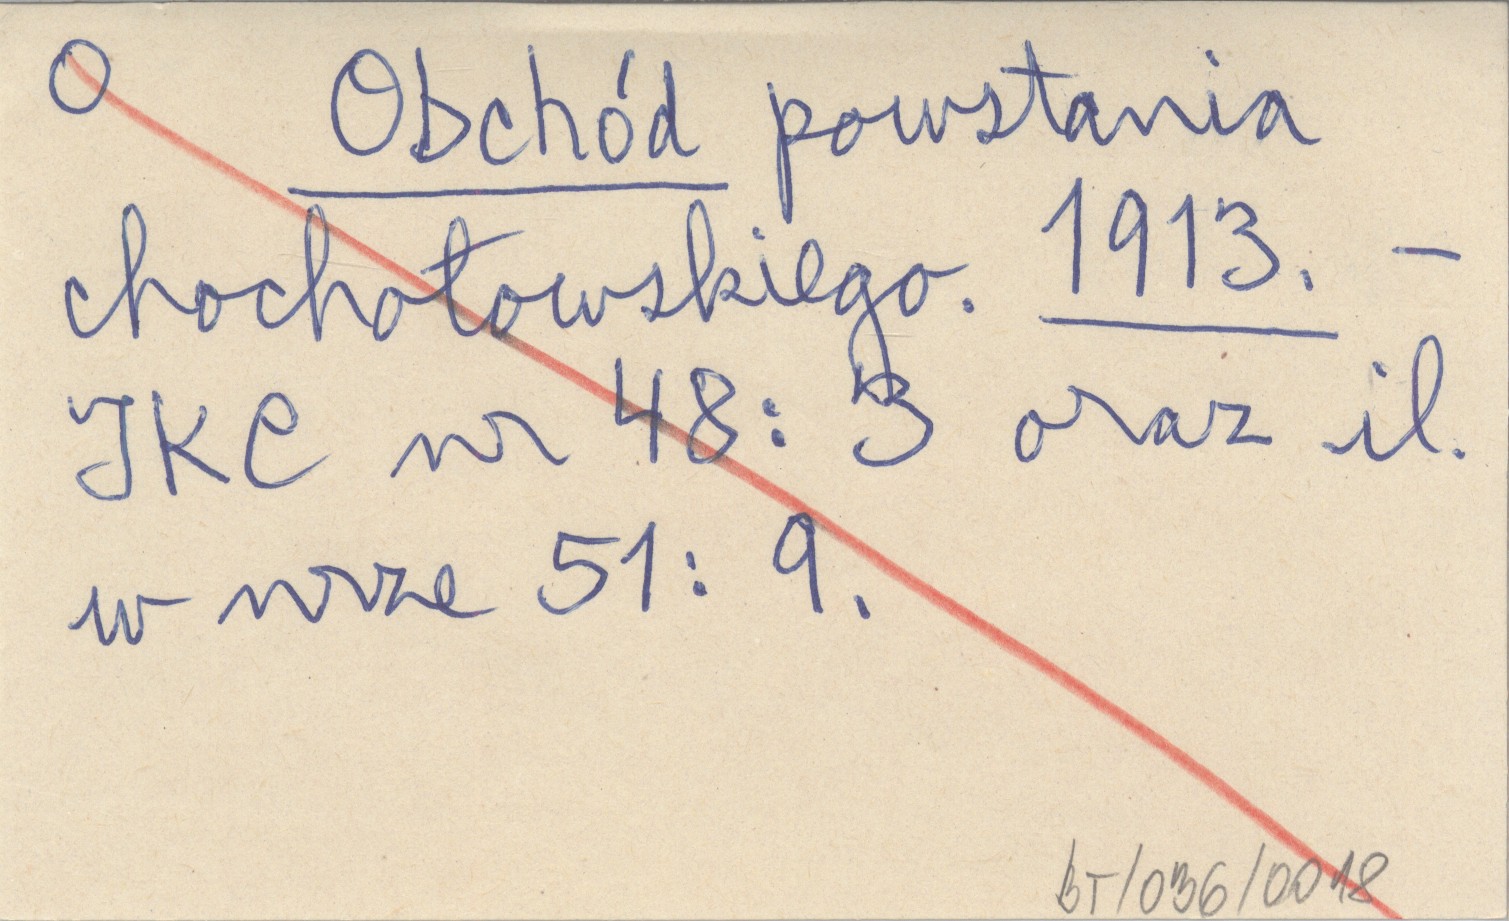 O Obchód powstania
chochołowskiego. 1913. –
IKC nr 48: 3 oraz il.
w nrze 51: 9.
BT/036/0018